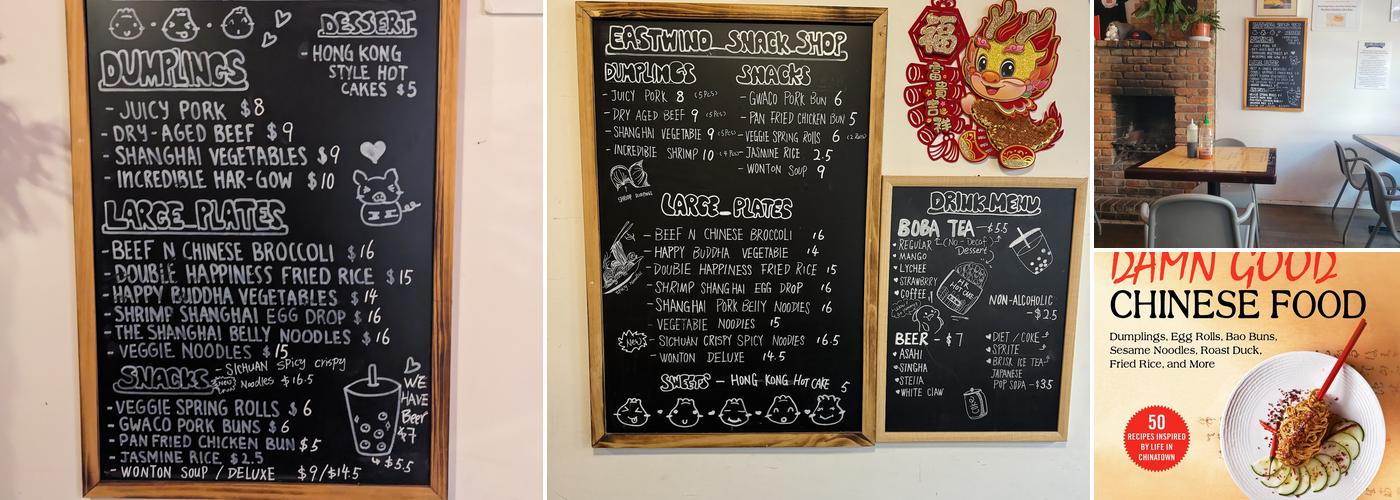 DESSERT
- HONG KONG
STYLE HOT
CAKES $5
DUMPLINGS
- JUICY PORK $8
- DRY-AGED BEEF $9
- SHANGHAI VEGETABLES $9
- INCREDIBLE HAR-GOW $10
LARGE PLATES
- BEEF N CHINESE BROCCOLI $16
- DOUBLE HAPPINESS FRIED RICE $15
- HAPPY BUDDHA VEGETABLES $14
- SHRIMP SHANGHAI EGG DROP $16
- THE SHANGHAI BELLY NOODLES $16
- VEGGIE NOODLES $15
- SICHUAN SPICY CRISPY
NEW Noodles $16.5
SNACKS
- VEGGIE SPRING ROLLS $6
- GWACO PORK BUNS $6
- PAN FRIED CHICKEN BUN $5
- JASMINE RICE $2.5
- WONTON SOUP / DELUXE $9/$14.5
WE
HAVE
Beer
$7
$5.5
EASTWIND SNACK SHOP
DUMPLINGS
- JUICY PORK 8 (5PCS)
- DRY AGED BEEF 9 (5PCS)
- SHANGHAI VEGETABLE 9 (5PCS)
- INCREDIBLE SHRIMP 10 (4PCS)
SNACKS
- GWACO PORK BUN 6
- PAN FRIED CHICKEN BUN 5
- VEGGIE SPRING ROLLS 6
- JASMINE RICE 2.5
- WONTON SOUP 9
LARGE PLATES
- BEEF N CHINESE BROCCOLI 16
- HAPPY BUDDHA VEGETABLE 14
- DOUBLE HAPPINESS FRIED RICE 15
- SHRIMP SHANGHAI EGG DROP 16
- SHANGHAI PORK BELLY NOODLES 16
- VEGETABLE NOODLES 15
NEW - SICHUAN CRISPY SPICY NOODLES 16.5
- WONTON DELUXE 14.5
SWEETS - HONG KONG HOT CAKE 5
福
富貴吉祥
DRINK MENU
BOBA TEA - $5.5
REGULAR (No-Decaf)
Dessert
MANGO
LYCHEE
STRAWBRRY
COFFEE
H.K.
HOT CAKE
NON-ALCOHOLIC
- $2.5
DIET / COKE
SPRITE
BRISK ICE TEA
JAPANESE
POP SODA - $3.5
BEER - $7
ASAHI
SINGHA
STELLA
WHITE CLAW
DAMN GOOD
CHINESE FOOD
Dumplings, Egg Rolls, Bao Buns,
Sesame Noodles, Roast Duck,
Fried Rice, and More
50
RECIPES INSPIRED
BY LIFE IN
CHINATOWN